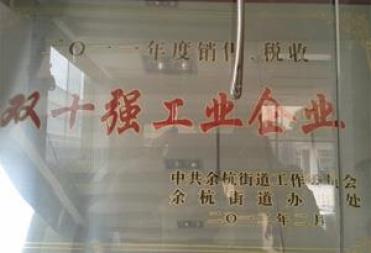 二〇一一年度销售、税收
双十强工业企业
中共余杭街道工作委员会
余杭街道办 处
二〇一二年二月